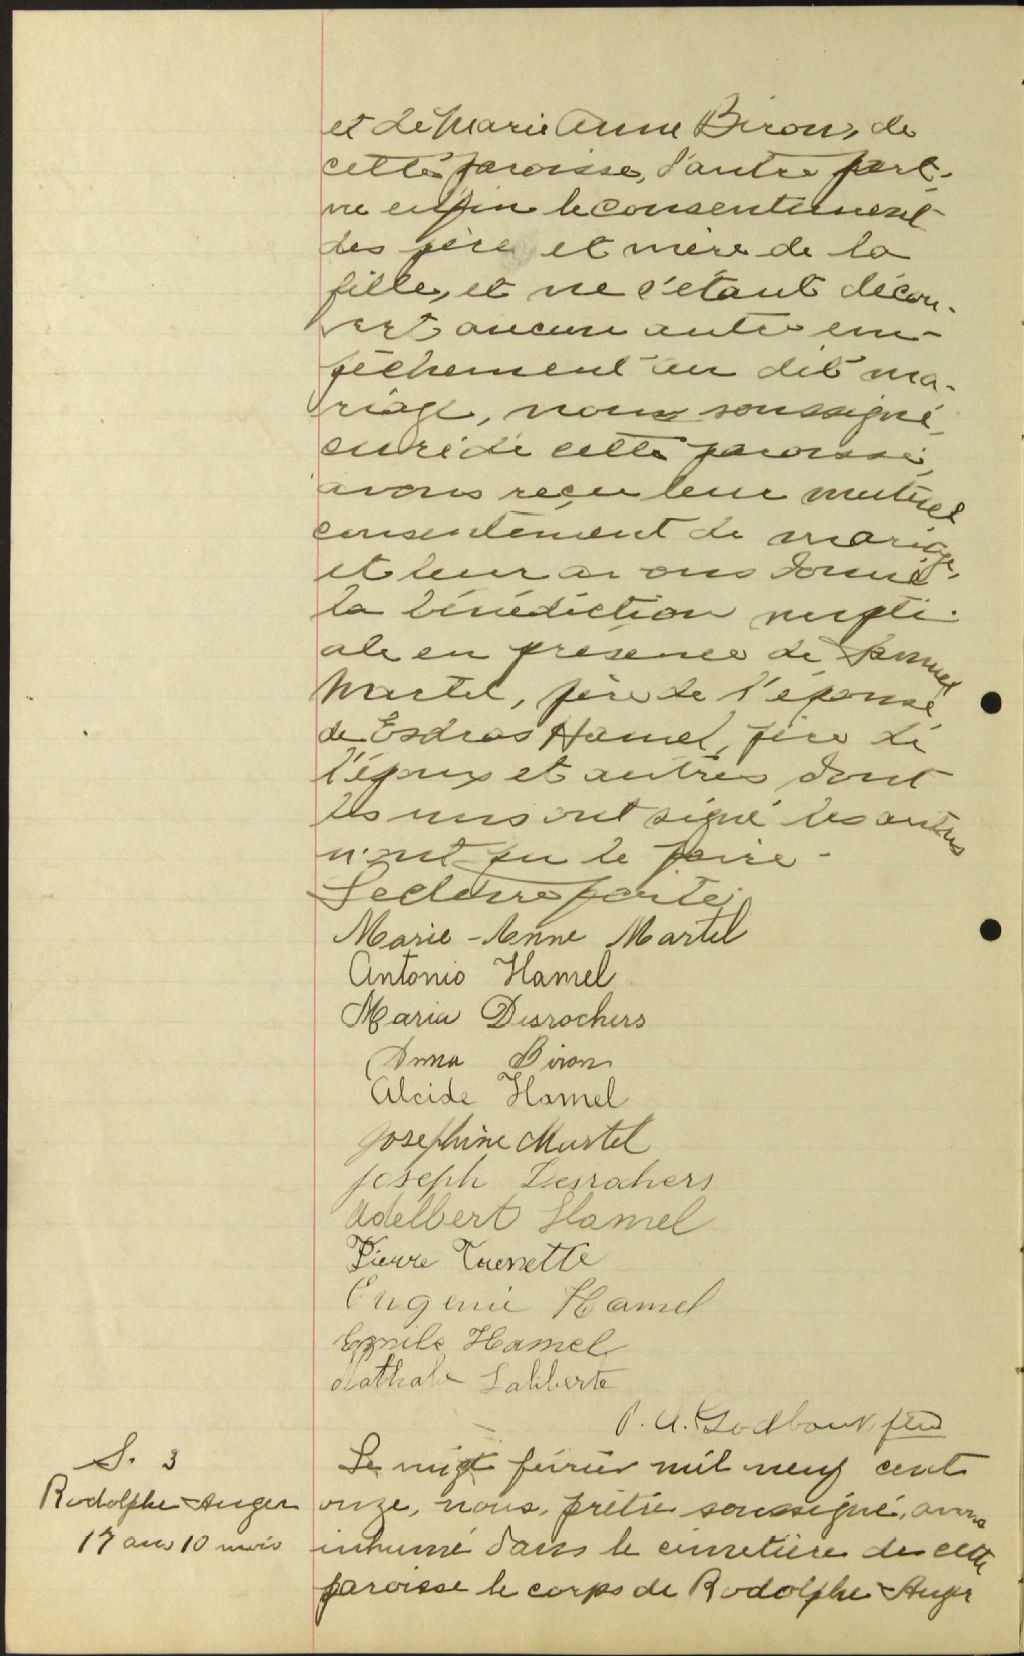 et de Marie Anne Biron, de
cette paroisse, d'autre part.
vu enfin le consentement
des père et mère de la
fille, et ne s'étant décou-
vert aucun autre em-
pêchement au dit ma-
riage, nous soussigné,
curé de cette paroisse,
avons reçu leur mutuel
consentement de mariage,
et leur avons donné
la bénédiction nupti-
ale en présence de
Martel, père de l'épouse,
de Esdras Hamel, père de
l'époux et autres dont
les uns ont signé les autres
n'ont pu le faire -
Lecture faite.
Marie-Anne Martel
Antonio Hamel
Maria Desrochers
Anna Biron
Alcide Hamel
Josephine Martel
Joseph Desrahers
Adelbert Hamel
Pierre
Eugenie Hamel
Emile Hamel
Laliberte
P. A. Godbout, ptre
S. 3
Rodolphe Auger
17 ans 10 mois
Le février mil neuf cent
onze, nous, prêtre soussigné, avons
inhumé dans le cimetière de cette
paroisse le corps de Rodolphe Auger